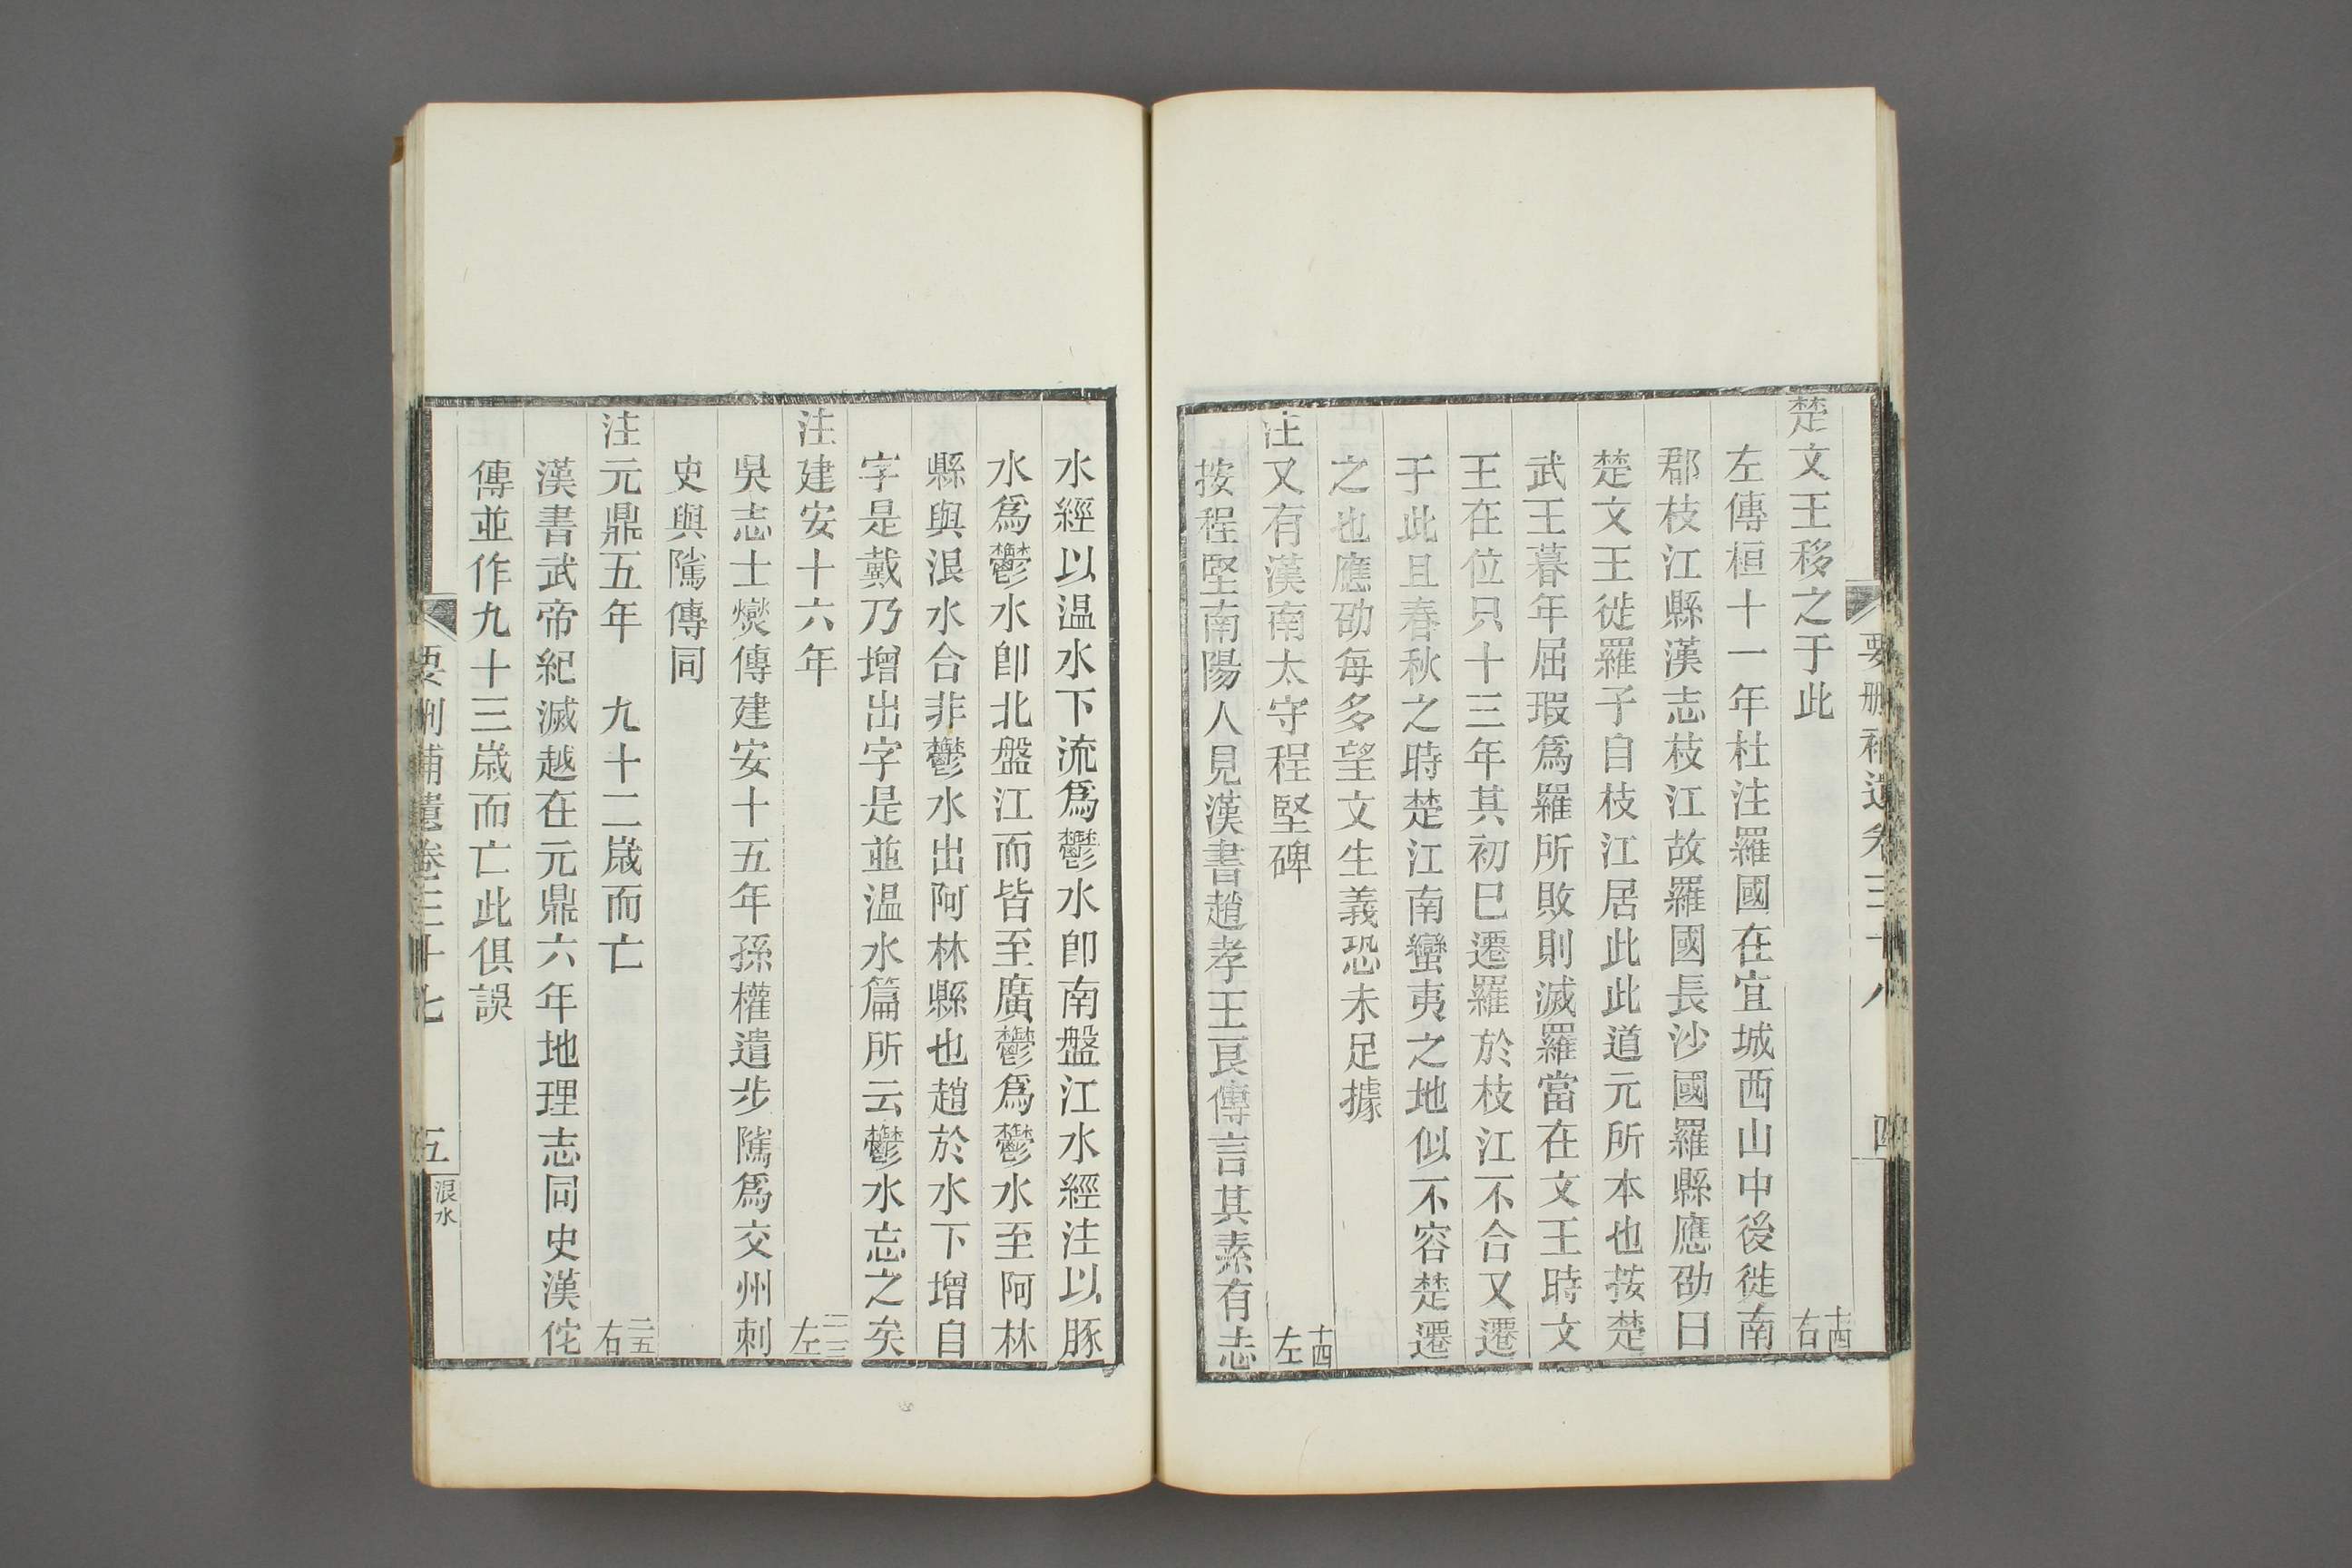 要刪補遺卷三十八 四
楚文王移之于此 十四右
左傳桓十一年杜注羅國在宜城西山中後徙南
郡枝江縣漢志枝江故羅國長沙國羅縣應劭曰
楚文王徙羅子自枝江居此此道元所本也按楚
武王暮年屈瑕爲羅所敗則滅羅當在文王時文
王在位只十三年其初已遷羅於枝江不合又遷
于此且春秋之時楚江南蠻夷之地似不容楚遷
之也應劭每多望文生義恐未足據
注又有漢南太守程堅碑 十四左
按程堅南陽人見漢書趙孝王良傳言其素有志
水經以溫水下流爲鬱水卽南盤江水經注以豚
水爲鬱水卽北盤江而皆至廣鬱爲鬱水至阿林
縣與浪水合非鬱水出阿林縣也趙於水下增自
字是戴乃增出字是並溫水篇所云鬱水忘之矣
注建安十六年 二三左
吳志士燮傳建安十五年孫權遣步隲爲交州刺
史與隲傳同
注元鼎五年 九十二歲而亡 二五右
漢書武帝紀滅越在元鼎六年地理志同史漢佗
傳並作九十三歲而亡此俱誤
要刪補遺卷三十七 五 浪水